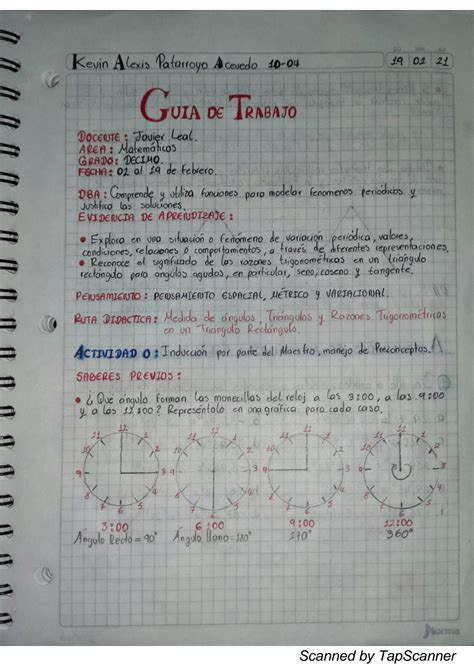 Kevin Alexis Patarroyo Acevedo 10-04
19 02 21
GUIA DE TRABAJO
DOCENTE: Javier Leal.
AREA: Matemáticas
GRADO: DECIMO.
FECHA: 02 al 19 de Febrero.
DBA: Comprende y utiliza funciones para modelar fenomenos periódicos y
justifica las soluciones.
EVIDENCIA DE APRENDIZAJE:
• Explora en una situación o fenómeno de variación periódica, valores,
condiciones, relaciones o comportamientos, a través de diferentes representaciones.
• Reconoce el significado de las razones trigonométricas en un triángulo
rectángulo para angulos agudos, en particular, seno, coseno y tangente.
PENSAMIENTO: PENSAMIENTO ESPACIAL, MÉTRICO Y VARIACIONAL.
RUTA DIDACTICA: Medida de ángulos, Triángulos y Razones Trigonométricas
en un Triangulo Rectángulo.
ACTIVIDAD 0: Inducción por parte del Maestro, manejo de Preconceptos.
SABERES PREVIOS:
• ¿Qué ángulo forman las manecillas del reloj a las 3:00, a las 9:00
y a las 12:00? Represéntalo en una gráfica para cada caso.
12 1 2 3 4 5 6 7 8 9 10 11
12 1 2 3 4 5 6 7 8 9 10 11
12 1 2 3 4 5 6 7 8 9 10 11
12 1 2 3 4 5 6 7 8 9 10 11
3:00 6:00 9:00 12:00
Ángulo Recto = 90° Ángulo llano = 180° 270° 360°
Norma
Scanned by TapScanner